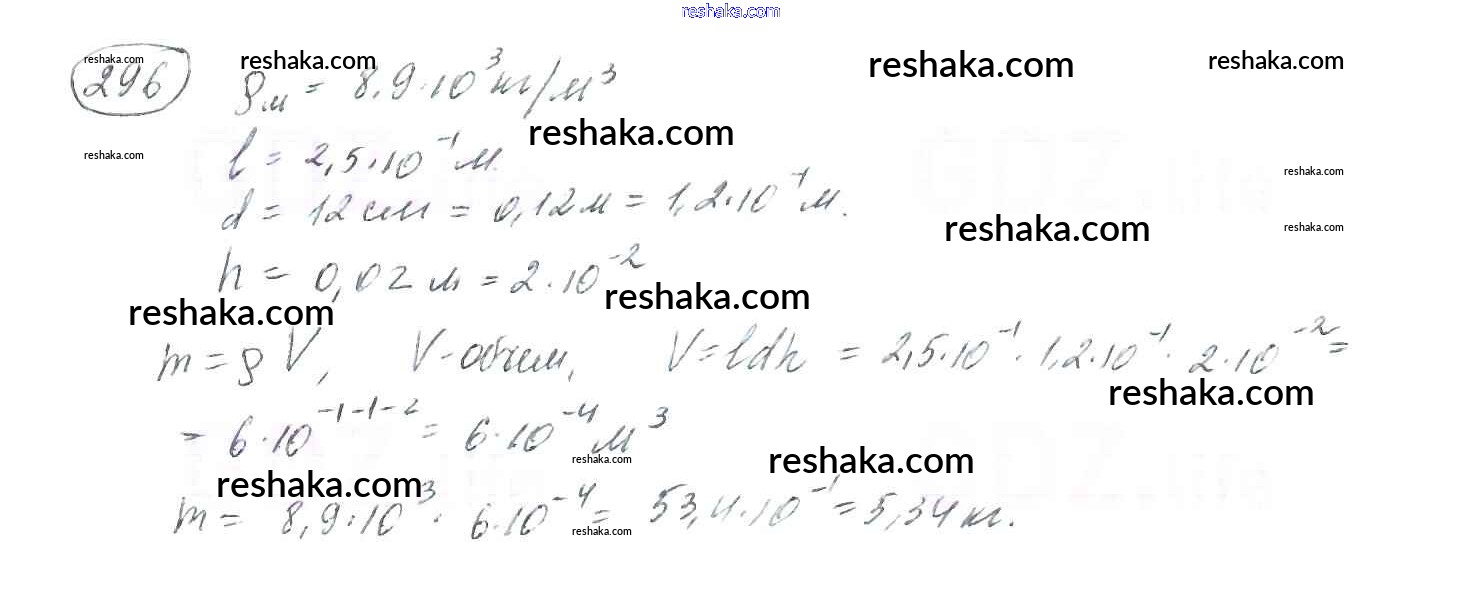 reshaka.com
296 ρм = 8,9·10³ кг/м³
reshaka.com reshaka.com reshaka.com reshaka.com
reshaka.com
l = 2,5·10⁻¹ м.
reshaka.com reshaka.com
d = 12 см = 0,12 м = 1,2·10⁻¹ м.
reshaka.com reshaka.com
h = 0,02 м = 2·10⁻²
reshaka.com reshaka.com
m = ρV, V - объем, V = ldh = 2,5·10⁻¹ · 1,2·10⁻¹ · 2·10⁻² =
reshaka.com
= 6·10⁻¹⁻¹⁻² = 6·10⁻⁴ м³
reshaka.com reshaka.com
reshaka.com
m = 8,9·10³ · 6·10⁻⁴ = 53,4·10⁻¹ = 5,34 кг.
reshaka.com